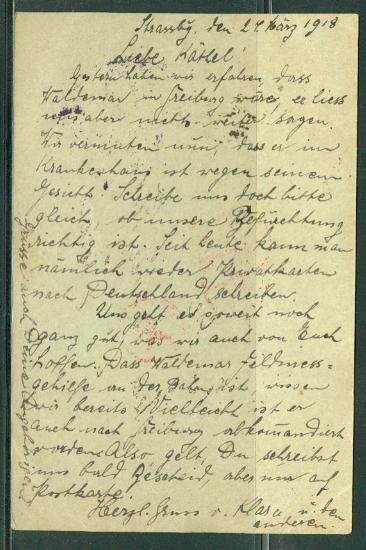 Strassbg, den 24. März 1918
Liebe Käthel!
Gestern haben wir erfahren, dass
Waldemar in Freiburg wäre, er liess
uns aber nichts weiter sagen.
Wir vermuten nun, dass er im
Krankenhaus ist wegen seinem
Gesicht. Schreibe uns doch bitte
gleich, ob unsere Befürchtung
richtig ist. Seit heute kann man
nämlich wieder Privatkarten
nach Deutschland schreiben.
Uns geht es soweit noch
ganz gut, was wir auch von Euch
hoffen. Dass Waldemar Feldmess=
gehilfe an der Bahn ist wissen
wir bereits. Vielleicht ist er
auch nach Freiburg abkomandiert
worden. Also gelt, Du schreibst
uns bald Bescheid, aber nur auf
Postkarte!
Herzl. Gruss v. Klara u. den
anderen.
Grüsse auch Deine Angehörigen